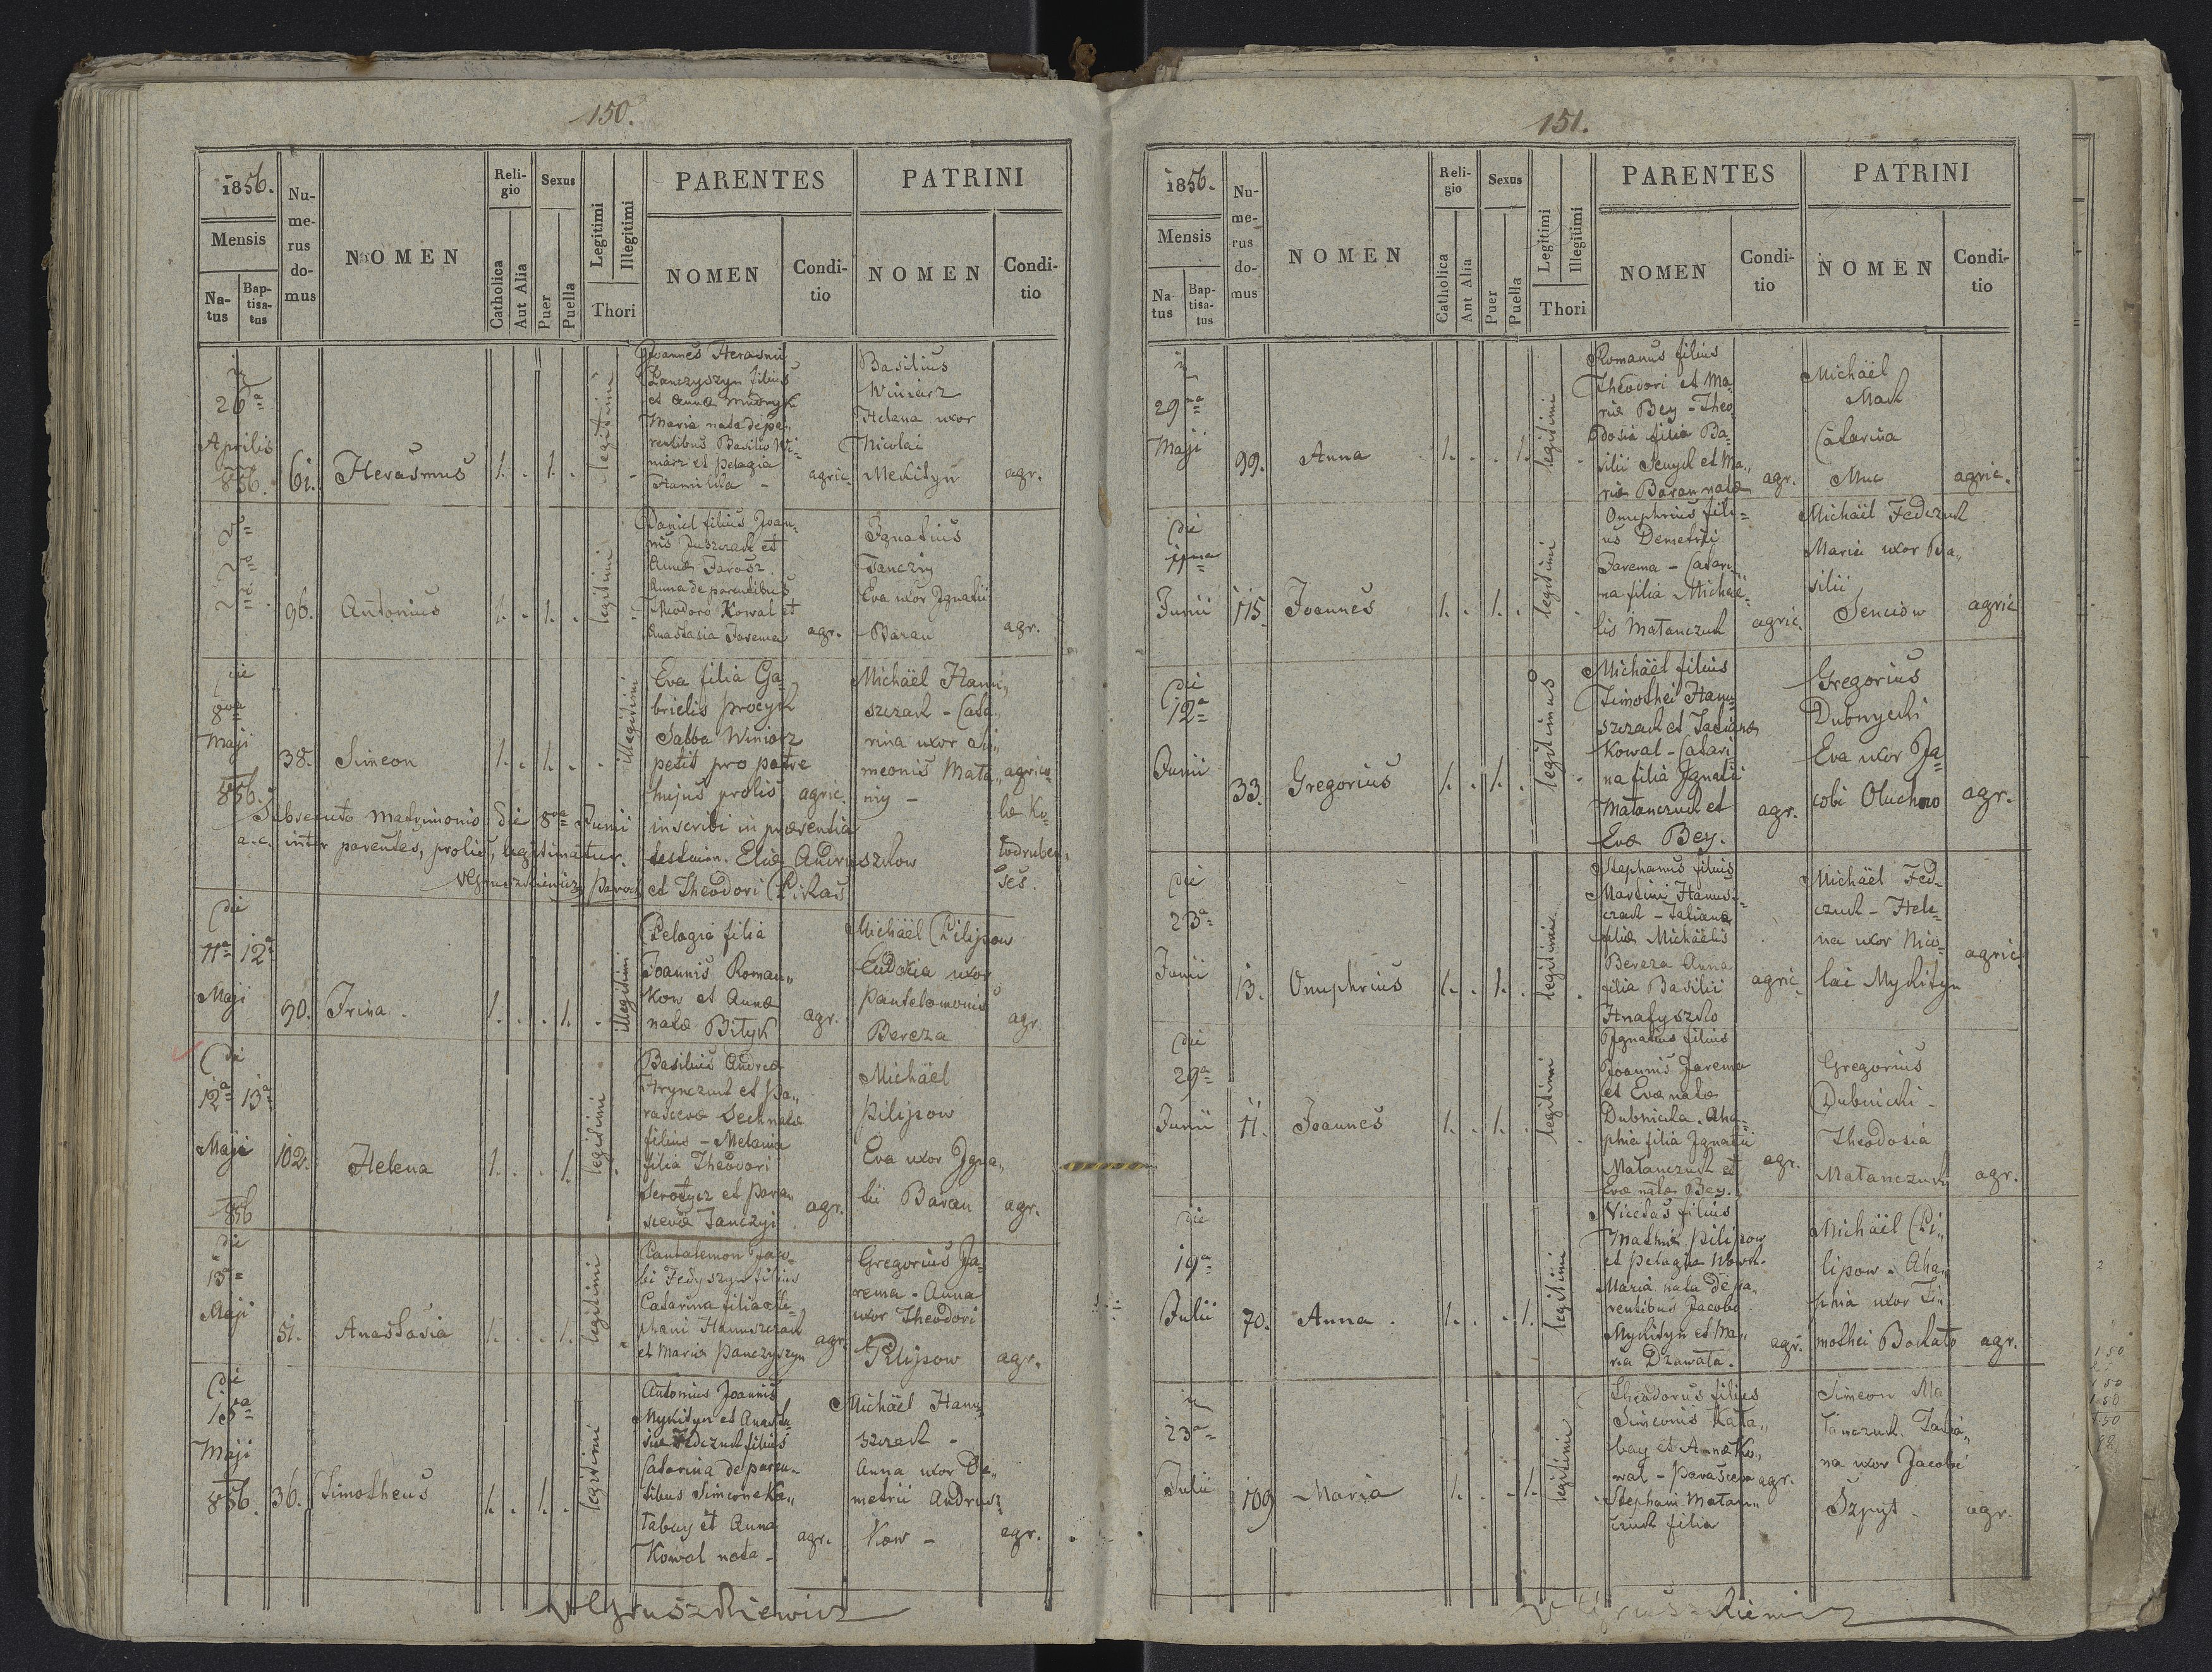 150.
1856.
Mensis
Na-
tus
Bap-
tisa-
tus
Nu-
me-
rus
do-
mus
NOMEN
Reli-
gio
Catholica
Aut Alia
Sexus
Puer
Puella
Legitimi
Illegitimi
Thori
PARENTES
NOMEN
Condi-
tio
PATRINI
NOMEN
Condi-
tio
26a
Aprilis
856.
61.
Herasmus
1. . 1. .
legitimi
Joannes Herasmi
Panczyszyn filius
et Anna
Maria nata de pa-
rentibus Basilio Wi-
niarz et Pelagia
agric.
Basilius
Winiarz
Helena uxor
Nicolai
Mekityn
agr.
96.
Antonius
1. . 1. .
legitimi
Daniel filius Joan-
nis Juszczak et
Annæ Jarosz.
Anna de parentibus
Theodoro Kowal et
Anastasia Jarema
agr.
Ignatius
Janczÿ
Eva uxor Ignatii
Baran
agr.
die
8va
Maji
856.
38.
Simeon
1. . 1. .
illegitimi
Eva filia Ga-
brielis Procyk
Sabba Winiarz
petit pro patre
hujus prolis
agric.
inscribi in præsentia
testium. Eliæ Andruszkow
et Theodori Pikas
Michäel Hanu-
szczak - Cata-
rina uxor Si-
meonis Mata-
nÿ -
agrico-
læ Ko-
lodruben-
ses.
Subsecuto matrimonio die 8va Junii
a.c. inter parentes, proles, legitimatur.
VGruszkiewicz Paroch
die
11a 12a
Maji
90.
Irina.
1. . . 1.
illegitimi
Pelagia filia
Joannis Roman-
kow et Annæ
natæ Bityk
agr.
Michäel Pilipow
Eudokia uxor
Pantelomonis
Bereza
agr.
die
12a 13a
Maji
856
102.
Helena
1. . . 1.
legitimi
Basilius Andreæ
Hrynczuk et Pa-
rascevæ Sech natæ
filius - Melania
filia Theodori
Serotycz et Para-
scevæ Janczÿi
agr.
Michäel
Pilipow
Eva uxor Igna-
tii Baran
agr.
die
13a
Maji
51.
Anastasia
1. . . 1.
legitimi
Pantalemon Jaco-
bi Fedyszyn filius
Catarina filia Ste-
phani Hanuszczak
et Mariæ Panczyszyn
agr.
Gregorius Ja-
rema - Anna
uxor Theodori
Pilipow
agr.
die
15a
Maji
856.
36.
Timotheus
1. . 1. .
legitimi
Antonius Joannis
Mykityn et Anasta-
siæ Fedczuk filius
Catarina de paren-
tibus Simeone Ka-
tabay et Anna
Kowal nata -
agr.
Michäel Hanu-
szczak -
Anna uxor De-
metrii Andrusz-
kow -
agr.
VGruszkiewicz
151.
1856.
Mensis
Na-
tus
Bap-
tisa-
tus
Nu-
me-
rus
do-
mus
NOMEN
Reli-
gio
Catholica
Ant Alia
Sexus
Puer
Puella
Legitimi
Illegitimi
Thori
PARENTES
NOMEN
Condi-
tio
PATRINI
NOMEN
Condi-
tio
29na
Maji
99.
Anna
1. . . 1.
legitimi
Romanus filius
Theodori et Ma-
riæ Bey - Theo-
dosia filia Ba-
silii Senyck et Ma-
riæ Baran natæ
agr.
Michäel
Mack
Catarina
Muc
agric.
die
11na
Junii
115.
Joannes
1. . 1. .
legitimi
Onuphrius fili-
us Demetrii
Jarema - Catari-
na filia Michae-
lis Matanczuk
agric.
Michäel Fedczuk
Maria uxor Ba-
silii
Senciow
agric
die
12a
Junii
33.
Gregorius
1. . 1. .
legitimus
Michäel filius
Timothei Hanu-
szczak et Tacianæ
Kowal - Catari-
na filia Ignatii
Matanczuk et
Evæ Bey.
agr.
Gregorius
Dubnycki
Eva uxor Ja-
cobi Oluchno
agr.
die
23a
Junii
13.
Onuphrius
1. . 1. .
legitimi
Stephanus filius
Martini Hanusz-
czak - Tatiana
filia Michäelis
Bereza Anna
filia Basilii
Hnatyszko
agric.
Michäel Fed-
czuk - Hele-
na uxor Nico-
lai Mykityn
agric.
die
29a
Junii
11.
Joannes
1. . 1. .
legitimi
Ignatius filius
Joannis Jarema
et Evæ natæ
Dubnicka. Aha-
phia filia Ignatii
Matanczuk et
Evæ natæ Bey.
agr.
Gregorius
Dubnicki -
Theodosia
Matanczuk
agr.
die
19a
Julii
70.
Anna.
1. . . 1.
legitimi
Nicetas filius
Mathiæ Pilipow
et Pelagiæ
Maria nata de pa-
rentibus Jacobo
Mykityn et Ma-
ria Drawata.
agr.
Michäel Pi-
lipow - Aha-
phia uxor Ti-
mothei Bockalo
agr.
23a
Julii
109
Maria
1. . . 1.
legitimi
Theodorus filius
Simeonis Kata-
bay et Annæ Ko-
wal - Parasceva
Stephani Matan-
czuk filia
agr.
Simeon Ma-
tanczuk. Tatia-
na uxor Jacobi
Szpyt -
agr.
VGruszkiewicz